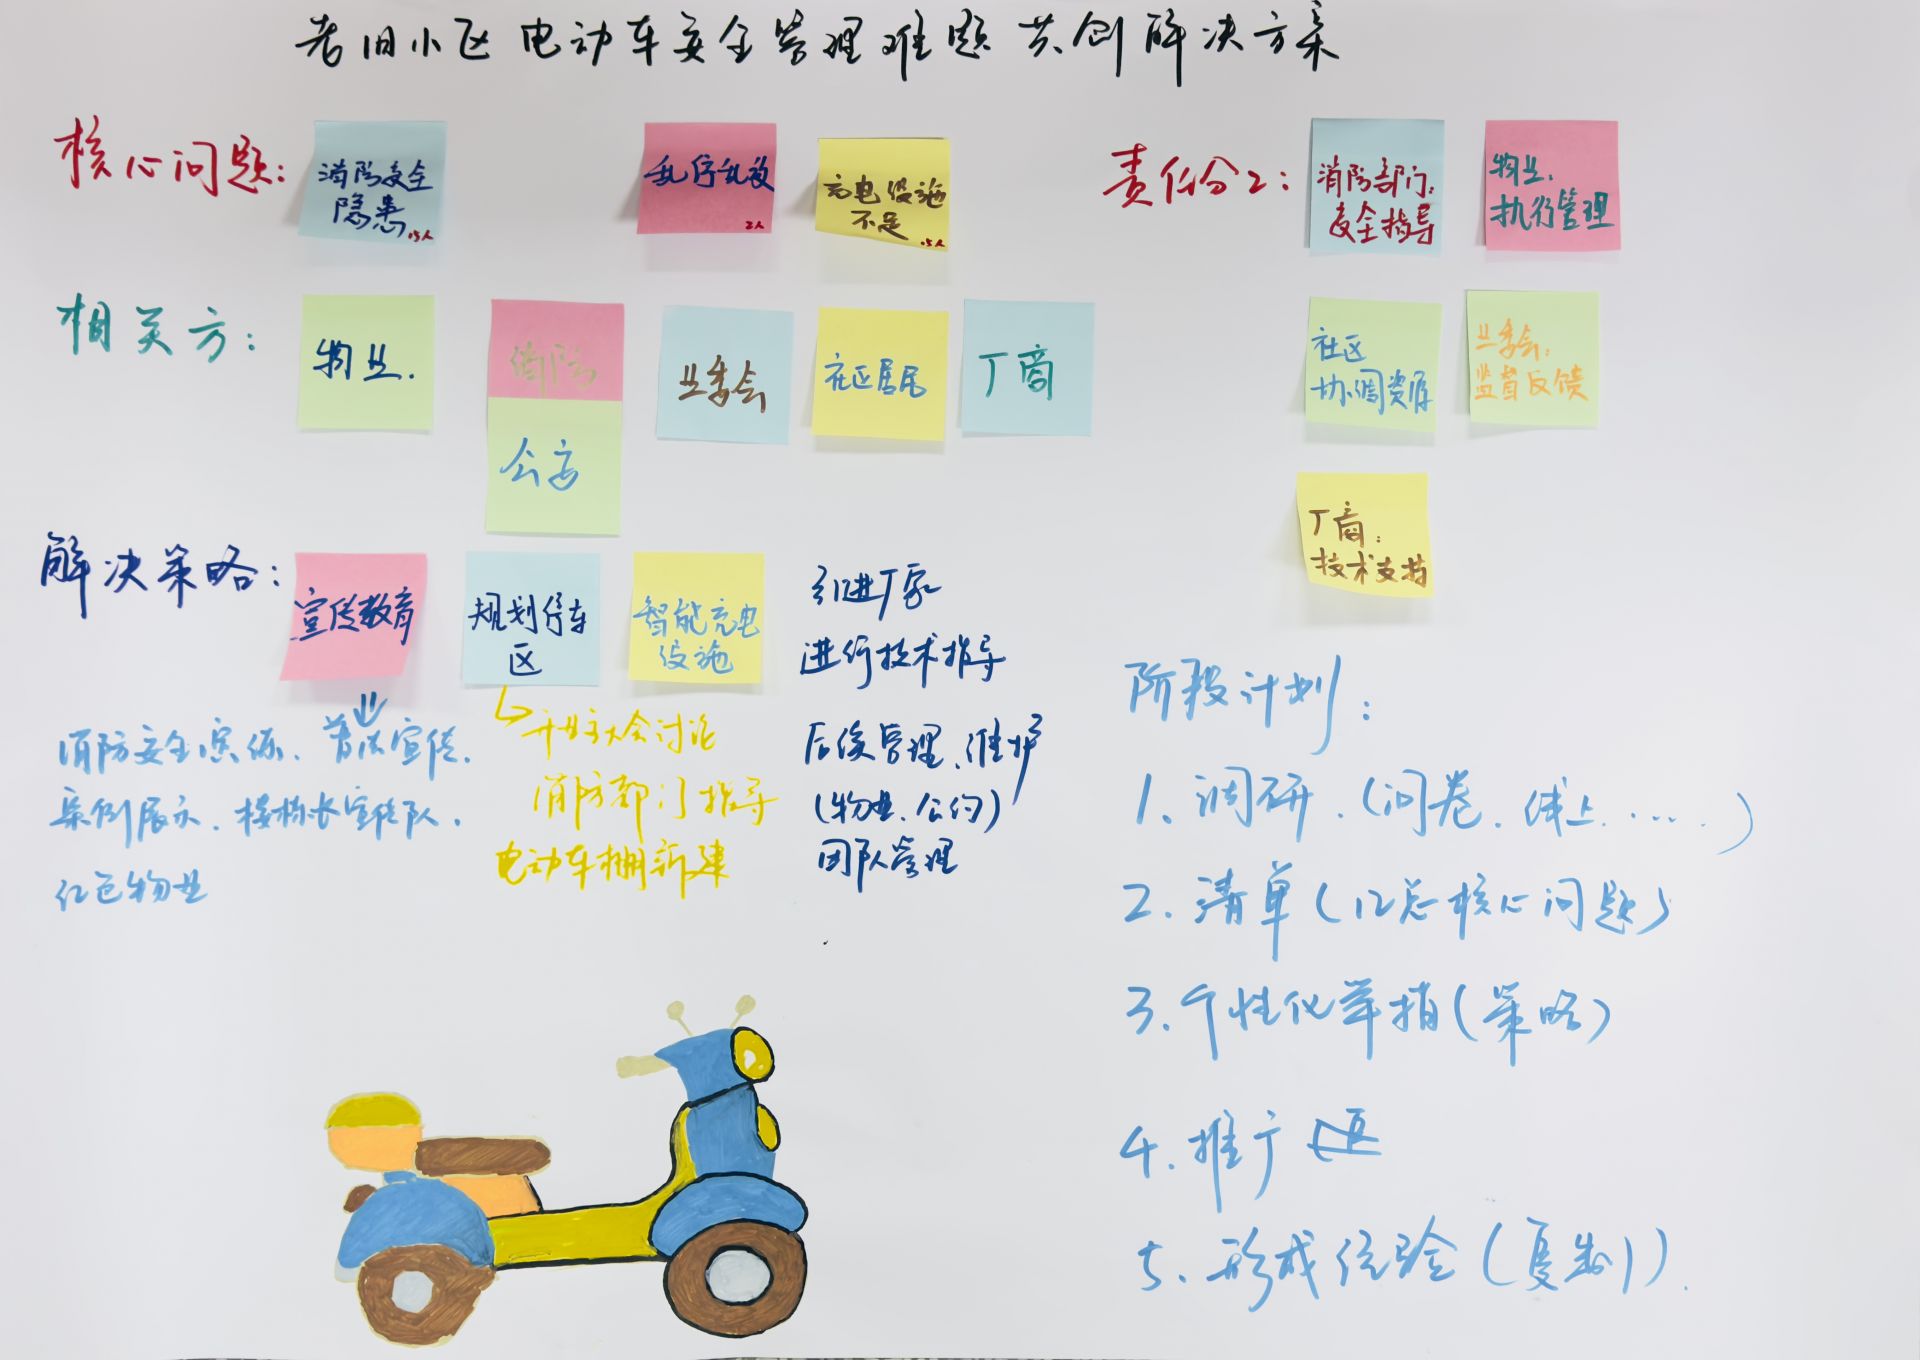 老旧小区 电动车安全管理难题 共创解决方案
核心问题:
消防安全
隐患
15人
乱停乱放
2人
充电设施
不足
15人
相关方:
物业.
消防
公安
业委会
社区居民
厂商
解决策略:
宣传教育
规划停车
区
智能充电
设施
引进厂家
进行技术指导
后续管理、维护
(物业、公约)
团队管理
消防安全演练、普法宣传、
案例展示、楼栋长宣传队、
红色物业
开业主大会讨论
消防部门指导
电动车棚新建
责任分工:
消防部门:
安全指导
物业.
执行管理
社区
协调资源
业委会:
监督反馈
厂商:
技术支持
阶段计划:
1、调研.(问卷、线上……)
2、清单(汇总核心问题)
3、个性化举措(策略)
4、推广
5、形成经验(复制).